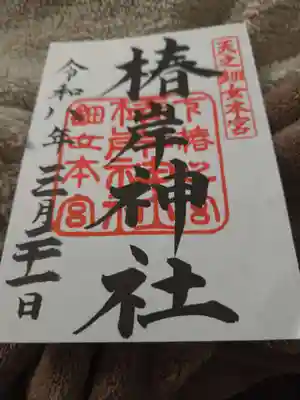 天之鈿女本宮
椿岸神社
椿岸神社
鈿女本宮
令和八年三月二十一日